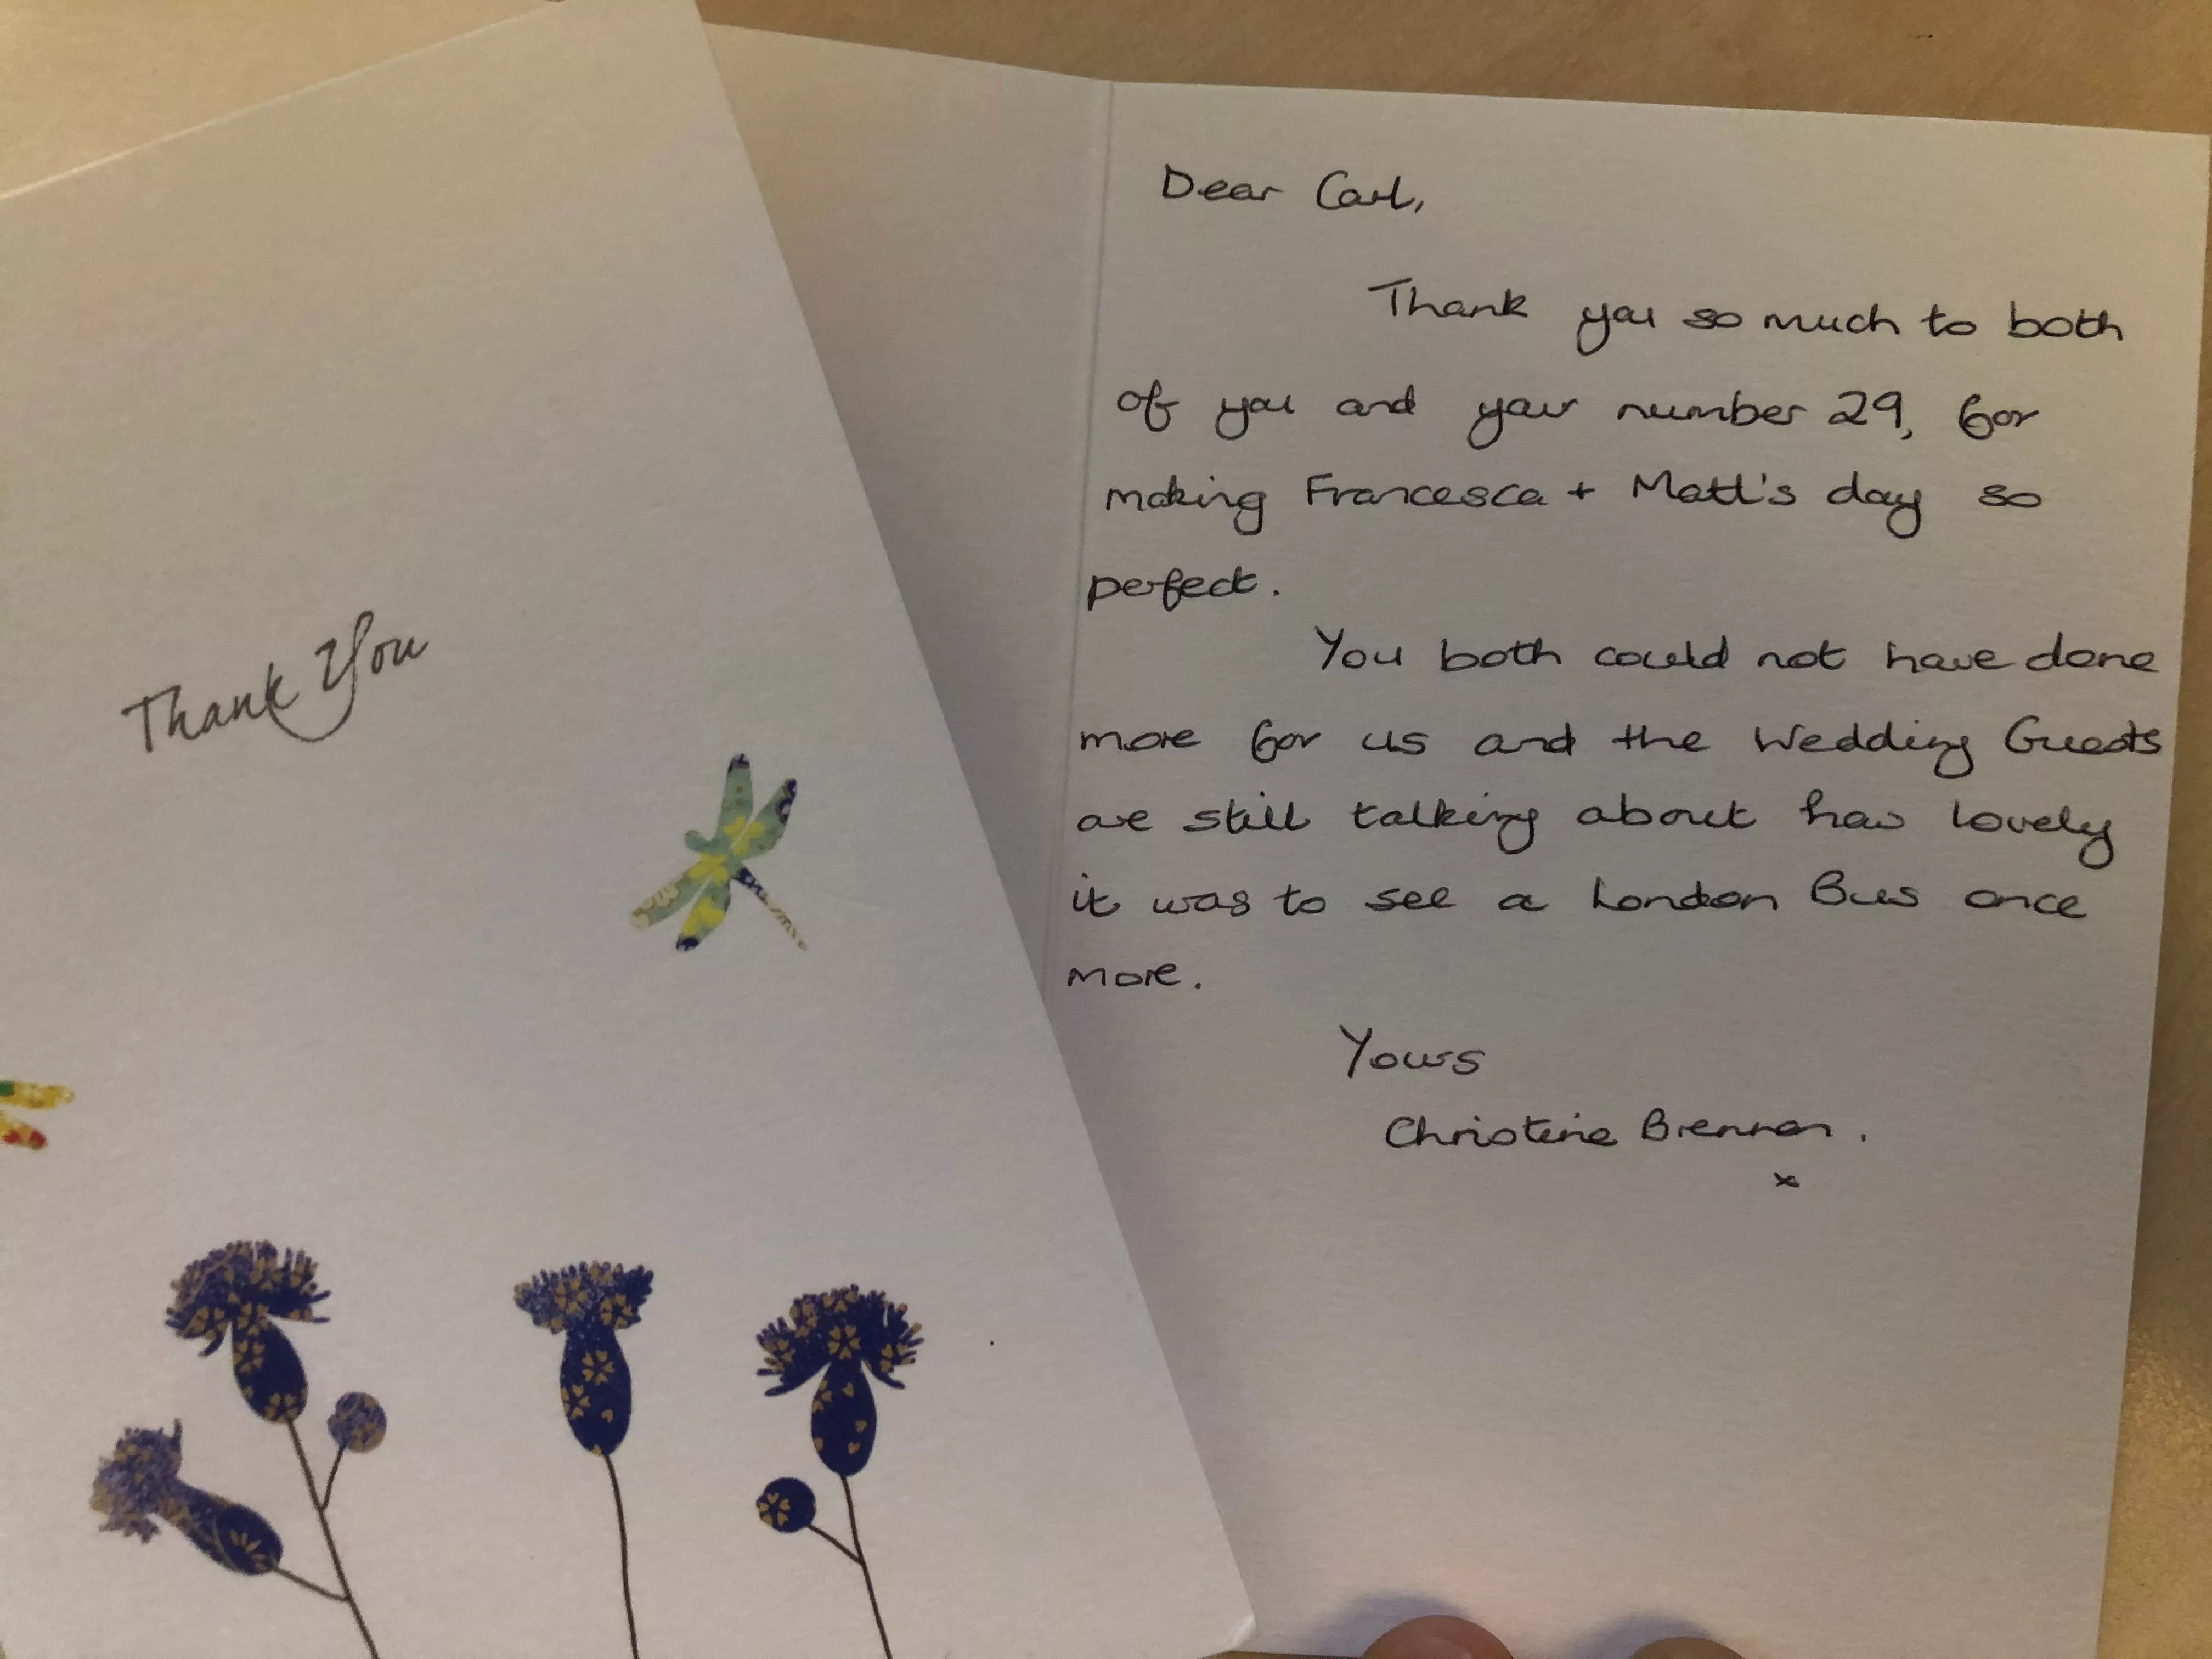 Thank You
Dear Carl,
Thank you so much to both
of you and your number 29, for
making Francesca + Matt's day so
perfect.
You both could not have done
more for us and the Wedding Guests
are still talking about how lovely
it was to see a London Bus once
more.
Yours
Christine Brennan.
x